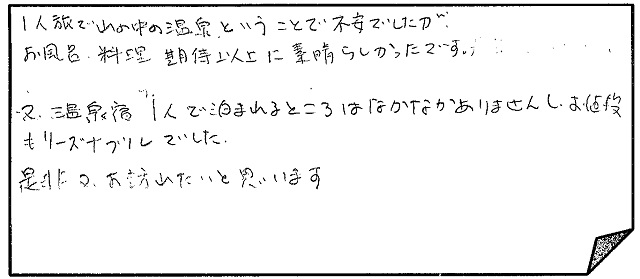 1人旅で山の中の温泉ということで不安でしたが、
お風呂、料理 期待以上に素晴らしかったです。
又、温泉宿 1人で泊まれるところはなかなかありませんし、お値段
もリーズナブルでした。
是非又、お訪れたいと思います